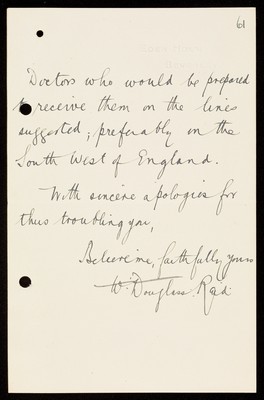 61
Doctors who would be prepared
to receive them on the lines
suggested; preferably in the
South West of England.
With sincere apologies for
thus troubling you,
Believe me, faithfully yours
W. Douglas Reid.